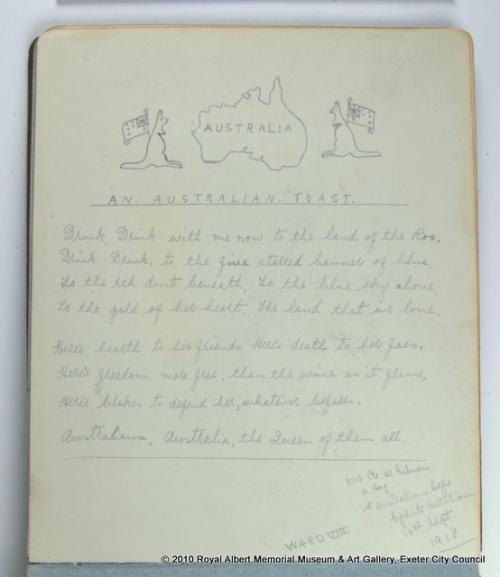 AUSTRALIA
AN. AUSTRALIAN. TOAST.
Drink, Drink, with me now to the land of the Roo,
Drink, Drink, to the five starred banner of blue,
To the red dust beneath, To the blue sky above,
To the gold of her heart. The land that we love.
Here's health to her friends, Here's death to her foes,
Here's freedom more free, than the wine as it flows,
Here's blokes to defend her, whatever befalls.
Australians, Australia, the Queen of them all.
Pte. W.
Australian
Sept.
1918
WARD VIII
© 2010 Royal Albert Memorial Museum & Art Gallery, Exeter City Council